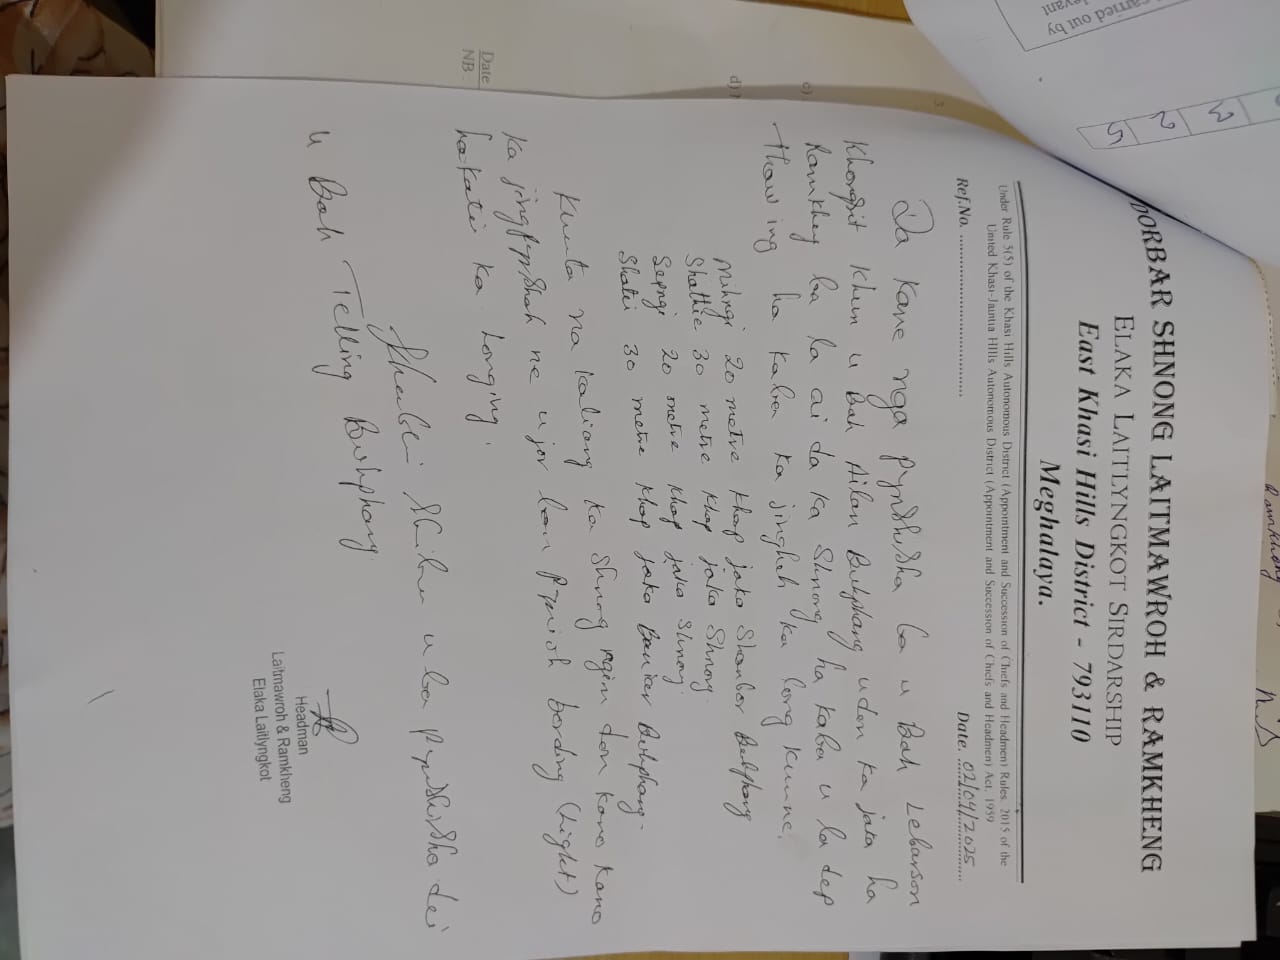 DORBAR SHNONG LAITMAWROH & RAMKHENG
ELAKA LAITLYNGKOT SIRDARSHIP
East Khasi Hills District - 793110
Meghalaya.
Under Rule 5(5) of the Khasi Hills Autonomous District (Appointment and Succession of Chiefs and Headmen) Rules, 2015 of the
United Khasi-Jaintia Hills Autonomous District (Appointment and Succession of Chiefs and Headmen) Act, 1959
Ref.No. .................................. Date. 02/04/2025
Da kane nga pynshisha ba u Bah Lebarson
Khongsit khun u Bah Ailan Buhphang udon ka jaka ha
Ramkheng ba la ai da ka Shnong ha kaba u la dep
thaw ing ha kaba ka jingheh ka long kumne.
Mihngi 20 metre khap jaka Shanbor Buhphang
Shathie 30 metre khap jaka Shnong.
Sepngi 20 metre khap jaka Shnong.
Shatei 30 metre khap jaka Buhphang.
Kumta na kaliang ka shnong ngim don kano kano
ka jingpynshah ne ujor ban pynioh bording (Light)
hakatei ka longing.
u ba pynshisha dei
u Bah Telling Buhphang.
Headman
Laitmawroh & Ramkheng
Elaka Laitlyngkot
carried out by
3
2
5
Date
NB
c)
d)
3